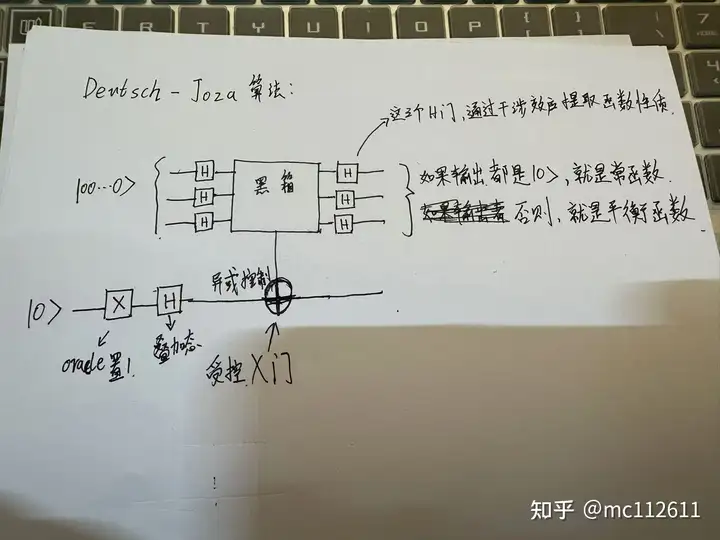 Deutsch - Joza 算法:
这三个H门,通过干涉效应提取函数性质.
|00...0>
H
H
H
黑箱
H
H
H
如果输出都是|0>,就是常函数.
否则,就是平衡函数
异或控制
|0>
X
H
oracle置1.
叠加态.
受控X门
知乎 @mc112611